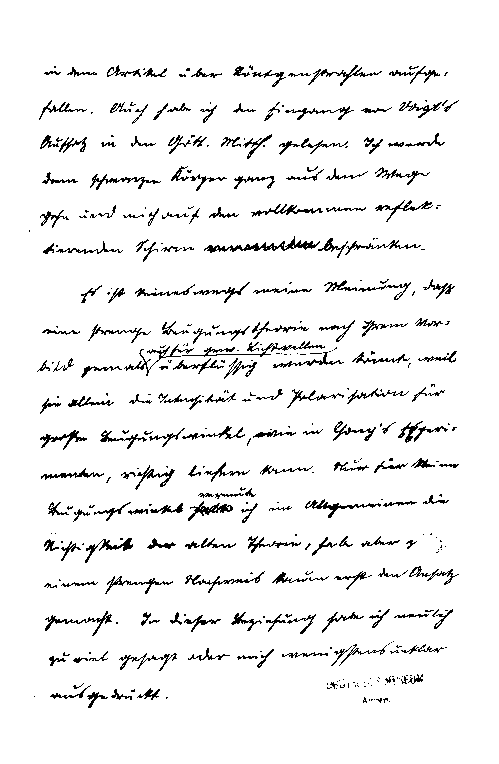 in dem Artikel über Röntgenstrahlen aufge-
fallen. Auch habe ich den Eingang von Voigt's
Aufsatz in den Gött. Mitth. gelesen. Ich werde
dem schwarzen Körper ganz aus dem Wege
gehn und mich auf den vollkommen reflek-
tierenden Schirm beschränken.
Es ist keineswegs meine Meinung, dass
eine strenge Beugungstheorie nach Ihrem Vor-
auch für gew. Lichtwellen
bild jemals überflüssig werden könnte, weil
sie allein die Intensität und Polarisation für
große Beugungswinkel, wie in Gouy's Experi-
menten, richtig liefern kann. Nur für kleine
vermute
Beugungswinkel ich im Allgemeinen die
Richtigkeit der alten Theorie, habe aber zu
einem strengen Nachweis kaum erst den Ansatz
gemacht. In dieser Beziehung habe ich neulich
zu viel gesagt oder mich wenigstens unklar
ausgedrückt.